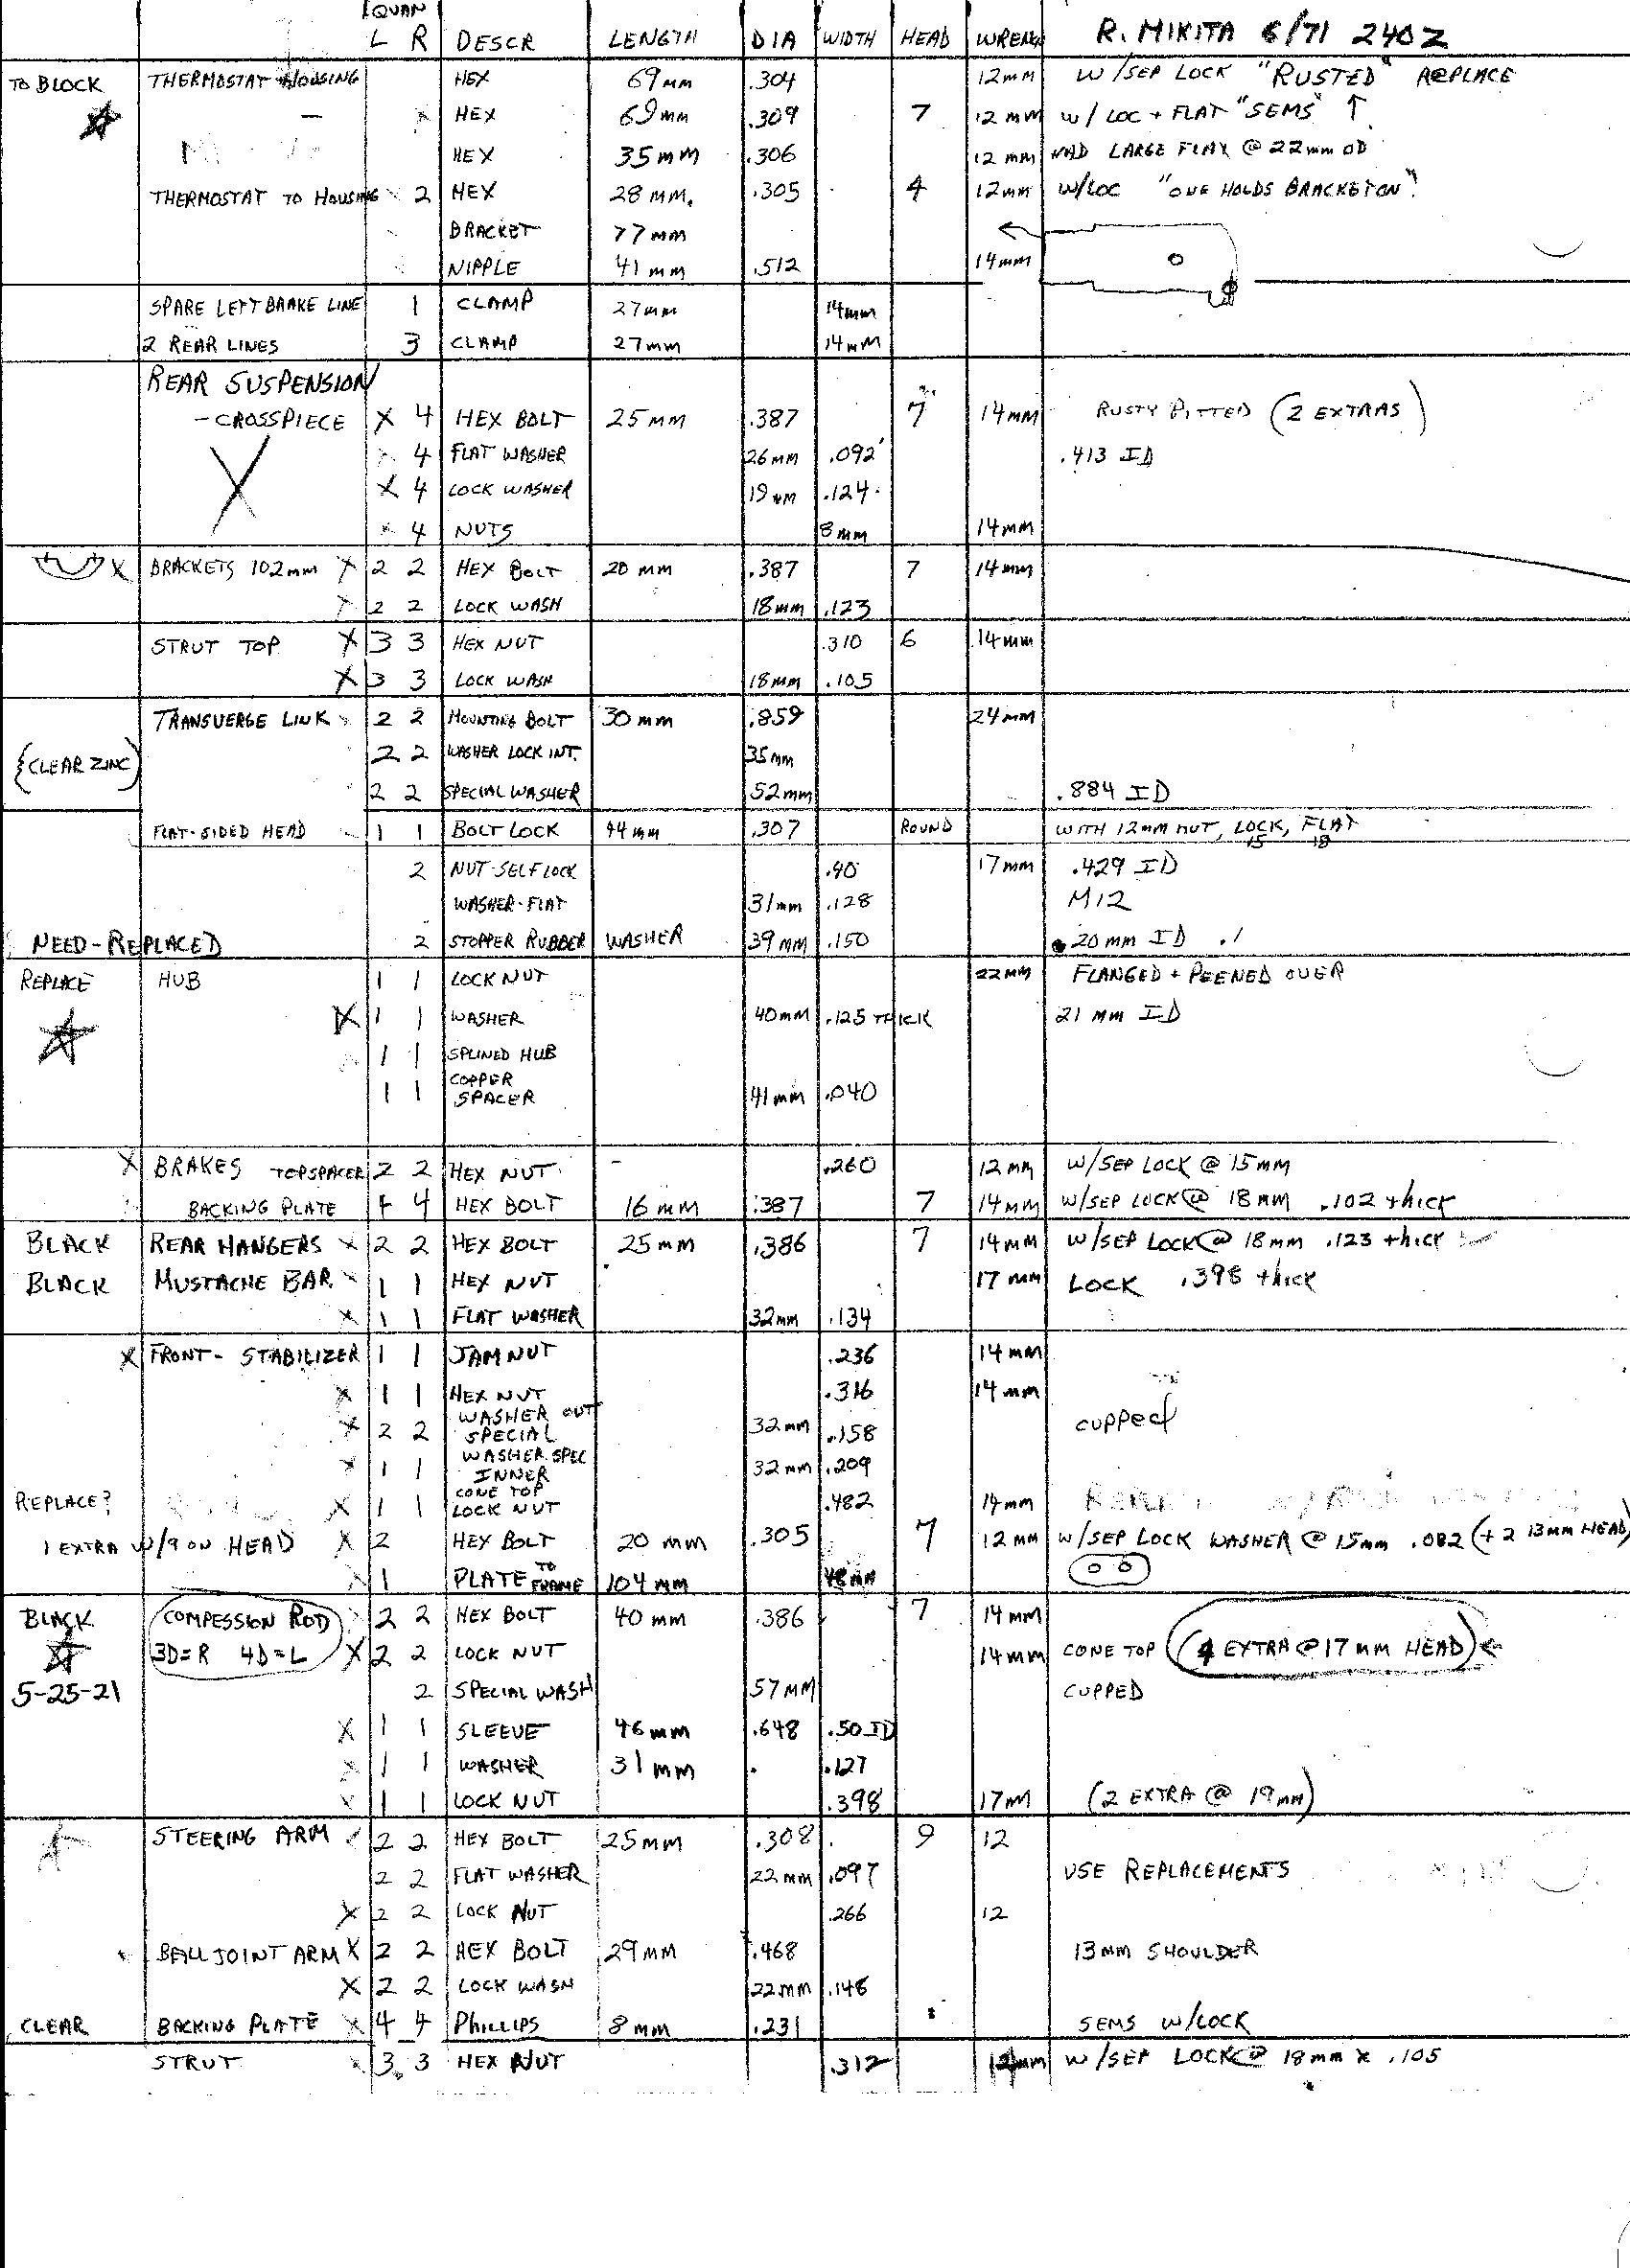 QUAN
L R DESCR LENGTH DIA WIDTH HEAD WRENCH R. MIKITA 6/71 240Z
TO BLOCK THERMOSTAT HOUSING HEX 69mm .304 12mm W/SEP LOCK "RUSTED" REPLACE
HEX 69mm .309 7 12mm W/ LOC + FLAT "SEMS" ↑
HEX 35mm .306 12mm HAD LARGE FLAT @ 22mm OD
THERMOSTAT TO HOUSING 2 HEX 28 MM. .305 4 12mm W/LOC "ONE HOLDS BRACKET ON"
BRACKET 77mm
NIPPLE 41mm .512 14mm
SPARE LEFT BRAKE LINE 1 CLAMP 27mm 14mm
2 REAR LINES 3 CLAMP 27mm 14mm
REAR SUSPENSION
- CROSSPIECE X 4 HEX BOLT 25mm .387 7 14mm RUSTY PITTED (2 EXTRAS)
X 4 FLAT WASHER 26mm .092 .413 ID
X 4 LOCK WASHER 19mm .124
X 4 NUTS 8mm 14mm
X BRACKETS 102mm X 2 2 HEX BOLT 20mm .387 7 14mm
X 2 2 LOCK WASH 18mm .123
STRUT TOP X 3 3 HEX NUT .310 6 14mm
X 3 3 LOCK WASH 18mm .105
TRANSVERGE LINK X 2 2 MOUNTING BOLT 30mm .859 24mm
{CLEAR ZINC} 2 2 WASHER LOCK INT. 35mm
2 2 SPECIAL WASHER 52mm .884 ID
FLAT-SIDED HEAD 1 1 BOLT LOCK 44mm .307 ROUND WITH 12mm NUT, LOCK, FLAT
15 18
2 NUT-SELFLOCK .40 17mm .429 ID
WASHER-FLAT 31mm .128 M12
NEED-REPLACED 2 STOPPER RUBBER WASHER 39mm .150 20mm ID .1
REPLACE HUB 1 1 LOCK NUT 22mm FLANGED + PEENED OVER
X 1 1 WASHER 40mm .125 THICK 21mm ID
1 1 SPLINED HUB
1 1 COPPER SPACER 41mm .040
X BRAKES TOPSPACER 2 2 HEX NUT - .260 12mm W/SEP LOCK @ 15mm
BACKING PLATE 4 4 HEX BOLT 16mm .387 7 14mm W/SEP LOCK @ 18mm .102 thick
BLACK REAR HANGERS X 2 2 HEX BOLT 25mm .386 7 14mm W/SEP LOCK @ 18mm .123 thick
BLACK MUSTACHE BAR X 1 1 HEX NUT 17mm LOCK .398 thick
X 1 1 FLAT WASHER 32mm .134
X FRONT- STABILIZER 1 1 JAM NUT .236 14mm
X 1 1 HEX NUT .316 14mm
X 2 2 WASHER OUT SPECIAL 32mm .158 cupped
X 1 1 WASHER SPEC INNER 32mm .209
REPLACE? X 1 1 CONE TOP LOCK NUT .482 14mm
1 EXTRA W/9 ON HEAD X 2 HEX BOLT 20mm .305 7 12mm W/SEP LOCK WASHER @ 15mm .082 (+2 13mm HEAD)
X 1 PLATE TO FRAME 104mm 48mm
BLACK COMPESSION ROD X 2 2 HEX BOLT 40mm .386 7 14mm
3D=R 4D=L X 2 2 LOCK NUT 14mm CONE TOP (4 EXTRA @ 17mm HEAD) ←
5-25-21 2 SPECIAL WASH 57mm CUPPED
X 1 1 SLEEVE 46mm .648 .50 ID
X 1 1 WASHER 31mm .127
X 1 1 LOCK NUT .398 17mm (2 EXTRA @ 19mm)
STEERING ARM 2 2 HEX BOLT 25mm .308 9 12
2 2 FLAT WASHER 22mm .097 USE REPLACEMENTS
X 2 2 LOCK NUT .266 12
BALL JOINT ARM X 2 2 HEX BOLT 29mm .468 13mm SHOULDER
X 2 2 LOCK WASH 22mm .146
CLEAR BACKING PLATE X 4 4 PHILLIPS 8mm .231 SEMS W/LOCK
STRUT X 3 3 HEX NUT .312 W/SEP LOCK @ 18mm X .105